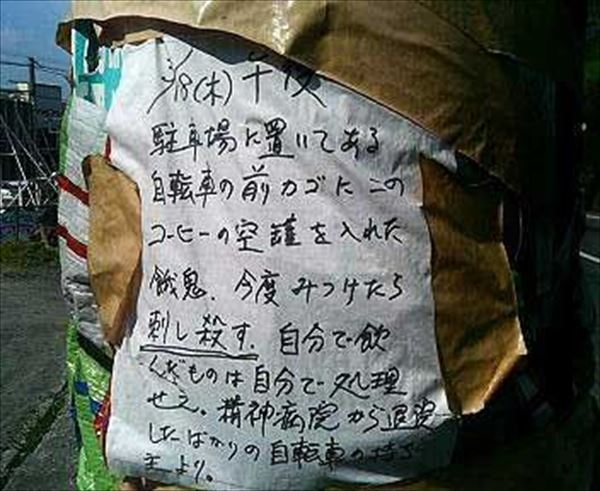 3/18(木) 午後
駐車場に置いてある
自転車の前カゴにこの
コーヒーの空罐を入れた
餓鬼、今度みつけたら
刺し殺す。自分で飲
んだものは自分で処理
せえ。精神病院から退院
したばかりの自転車の持ち
主より。